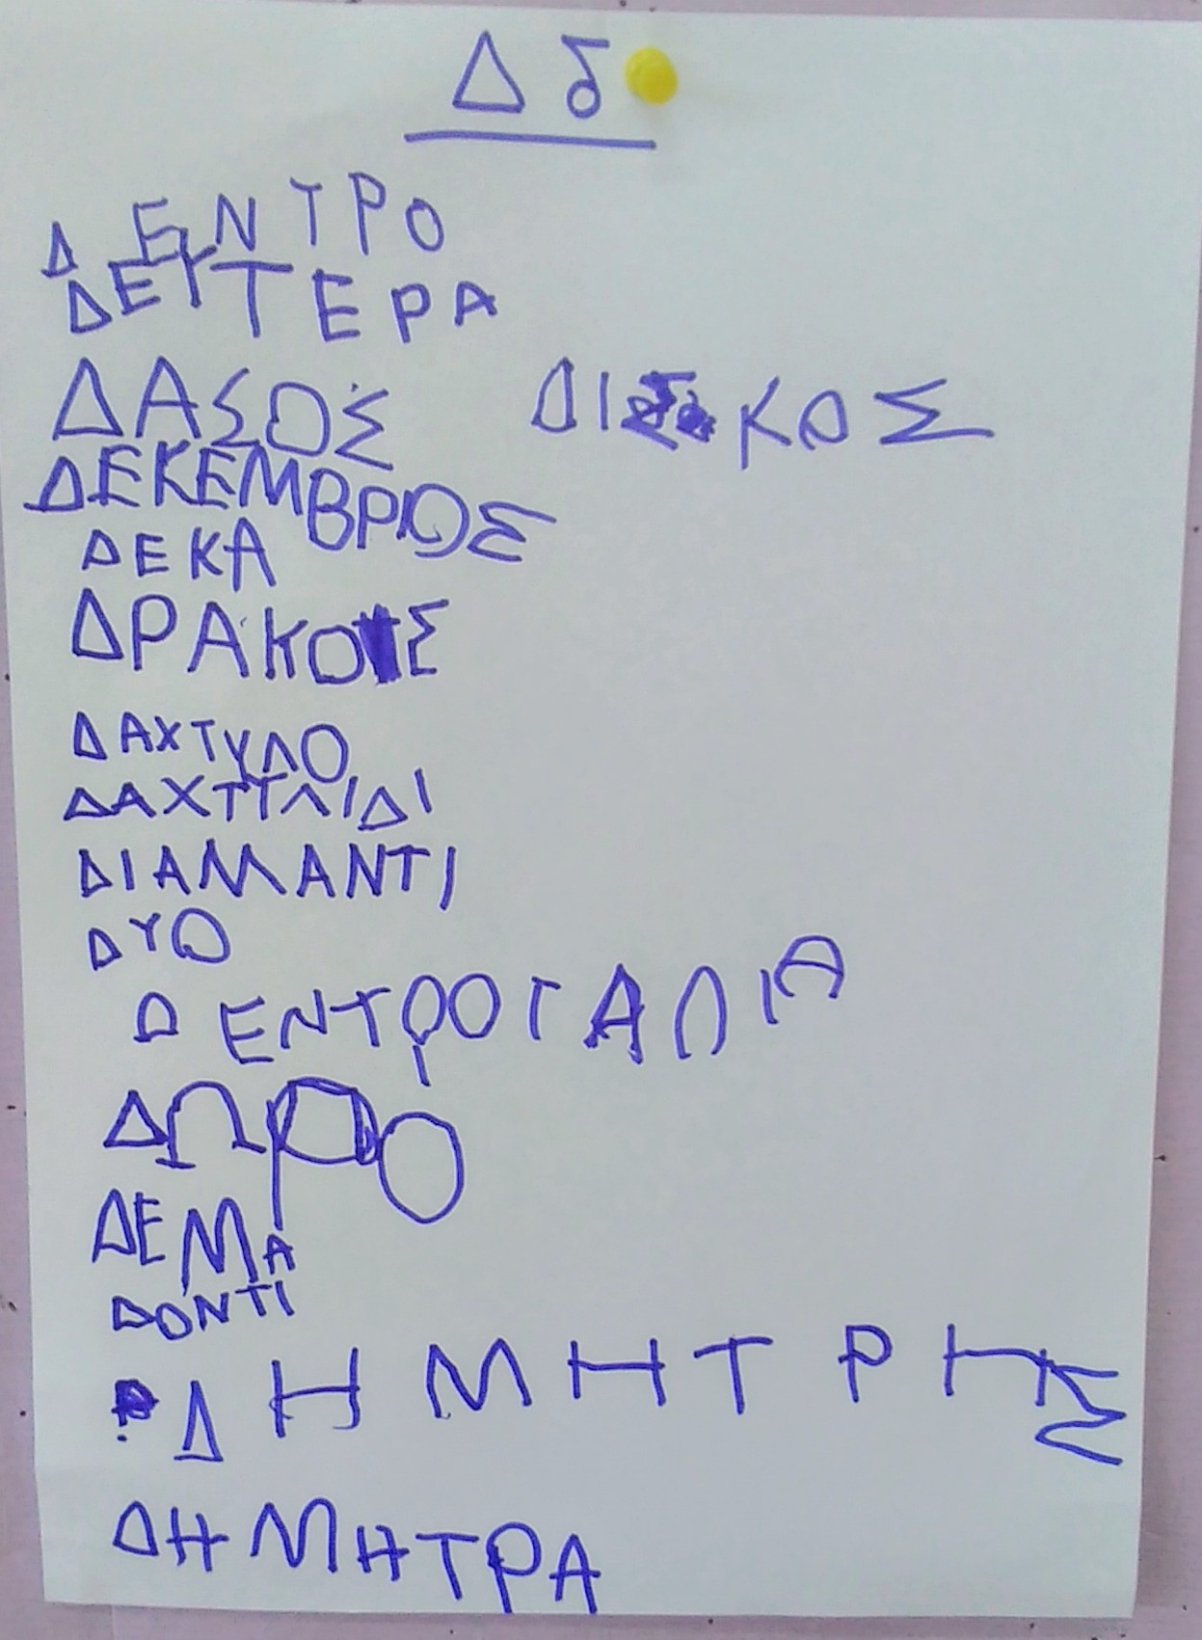 Δ δ
ΔΕΝΤΡΟ
ΔΕΥΤΕΡΑ
ΔΑΣΟΣ ΔΙΣΚΟΣ
ΔΕΚΕΜΒΡΙΟΣ
ΔΕΚΑ
ΔΡΑΚΟΣ
ΔΑΧΤΥΛΟ
ΔΑΧΤΥΛΙΔΙ
ΔΙΑΜΑΝΤΙ
ΔΥΟ
ΔΕΝΤΡΟΓΑΛΙΑ
ΔΩΡΟ
ΔΕΜΑ
ΔΟΝΤΙ
ΔΗΜΗΤΡΗΣ
ΔΗΜΗΤΡΑ